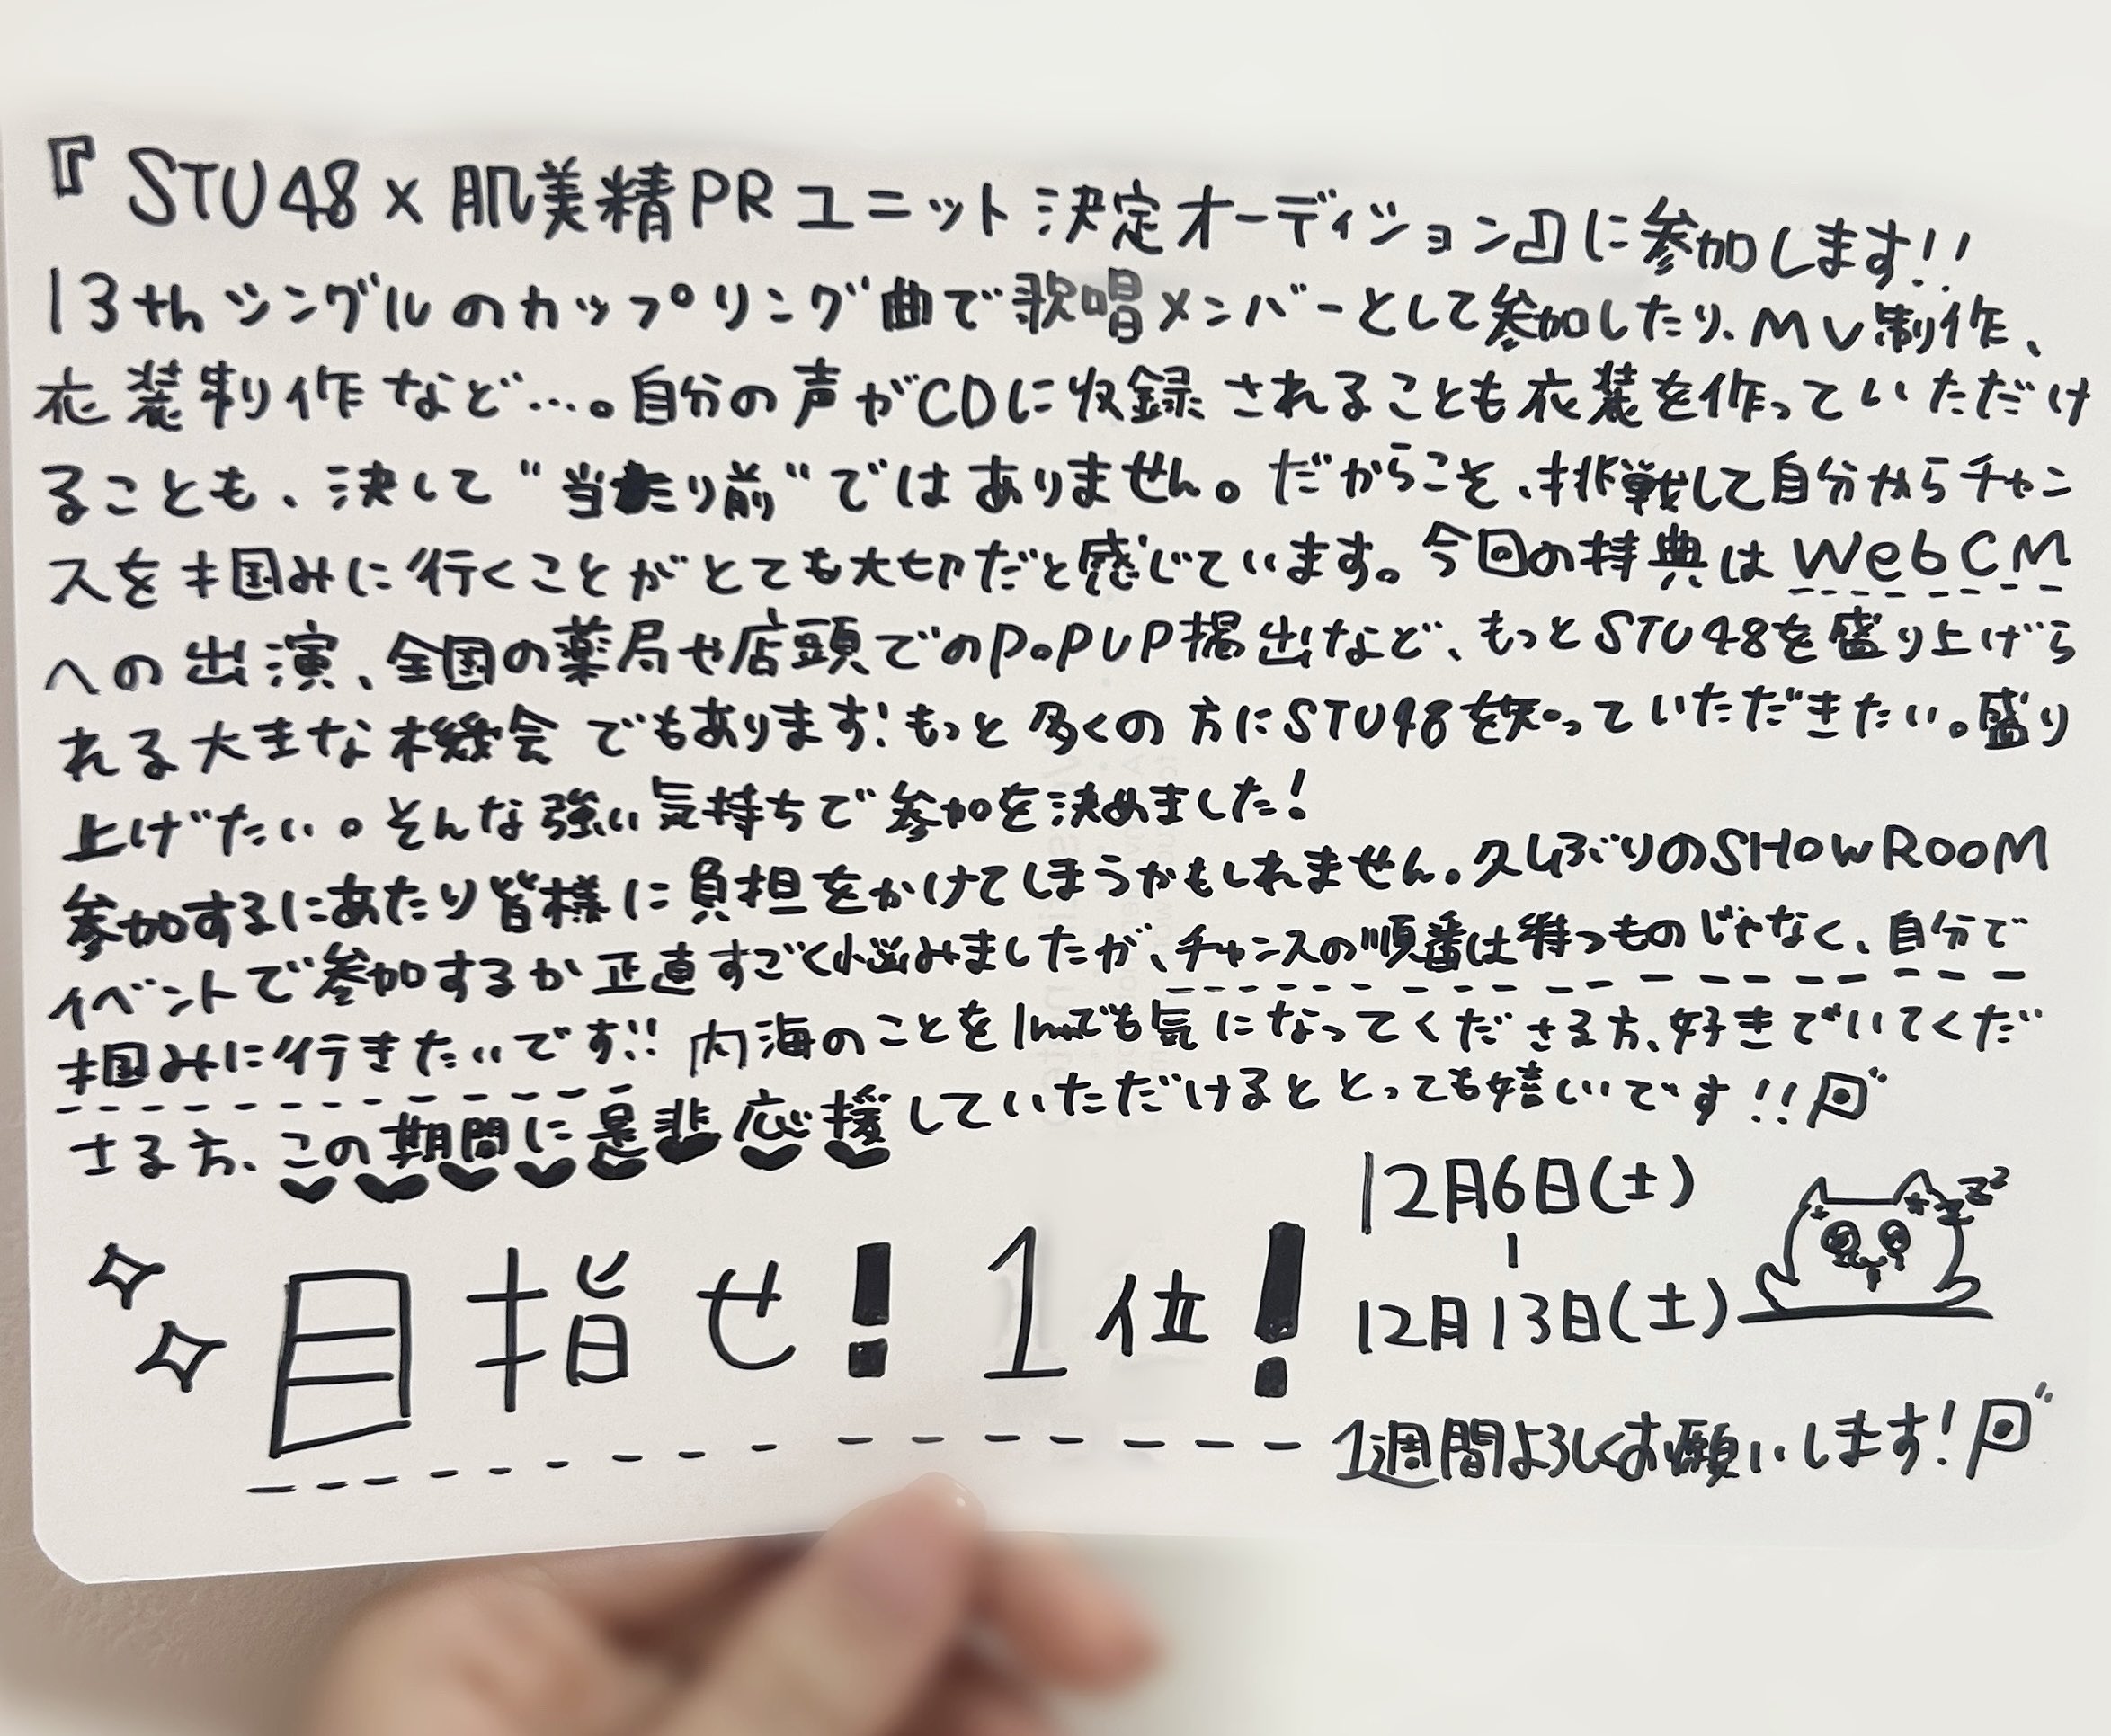 『STU48×肌美精PRユニット決定オーディション』に参加します!!
13thシングルのカップリング曲で歌唱メンバーとして参加したり、MV制作、
衣装制作など…。自分の声がCDに収録されることも衣装を作っていただけ
ることも、決して"当たり前"ではありません。だからこそ、挑戦して自分からチャン
スを掴みに行くことがとても大切だと感じています。今回の特典はWebCM
への出演、全国の薬局や店頭でのPoPUP掲出など、もっとSTU48を盛り上げら
れる大きな機会でもあります!もっと多くの方にSTU48を知っていただきたい。盛り
上げたい。そんな強い気持ちで参加を決めました!
参加するにあたり皆様に負担をかけてしまうかもしれません。久しぶりのSHOWROOM
イベントで参加するか正直すごく悩みましたが、チャンスの順番は待つものじゃなく、自分で
掴みに行きたいです!! 内海のことを1mmでも気になってくださる方、好きでいてくだ
さる方、この期間に是非応援していただけるととっても嬉しいです!!
目指せ!1位!
12月6日(土)
|
12月13日(土)
zz
1週間よろしくお願いします!